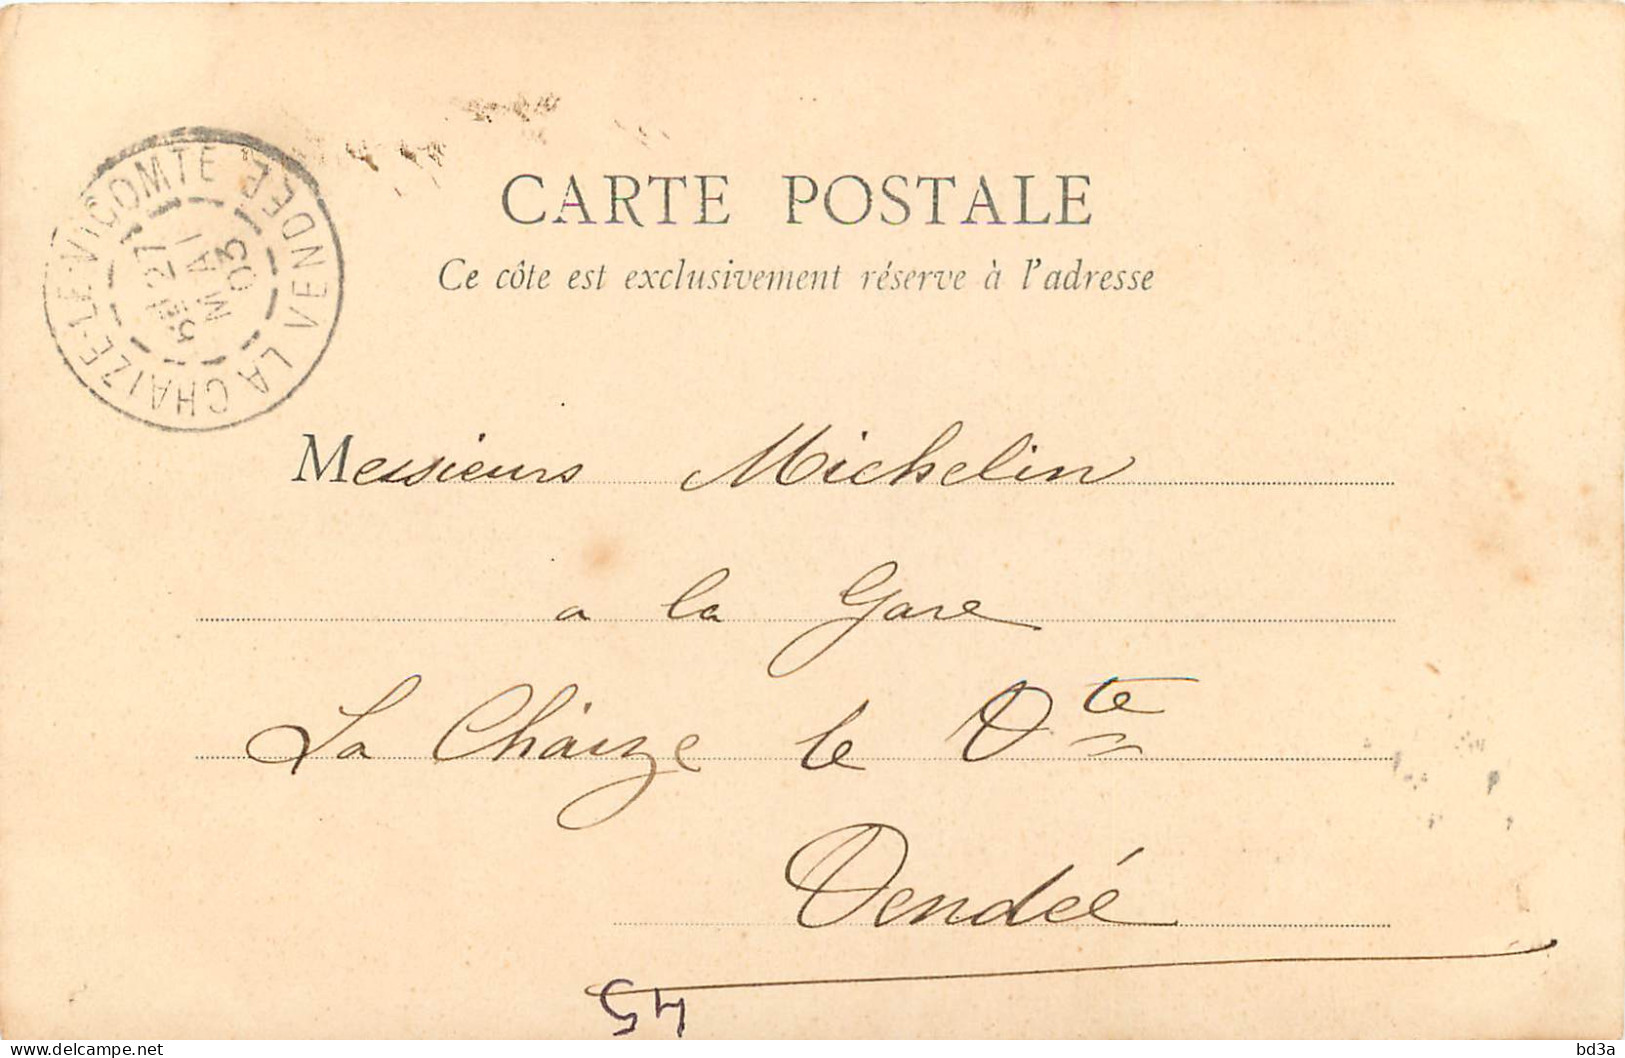 LA CHAIZE-LE-VICOMTE
VENDÉE
27
MAI
03
CARTE POSTALE
Ce côte est exclusivement réserve à l'adresse
Messieurs Michelin
a la Gare
La Chaize le Vte
Vendée
45
delcampe.net
bd3a